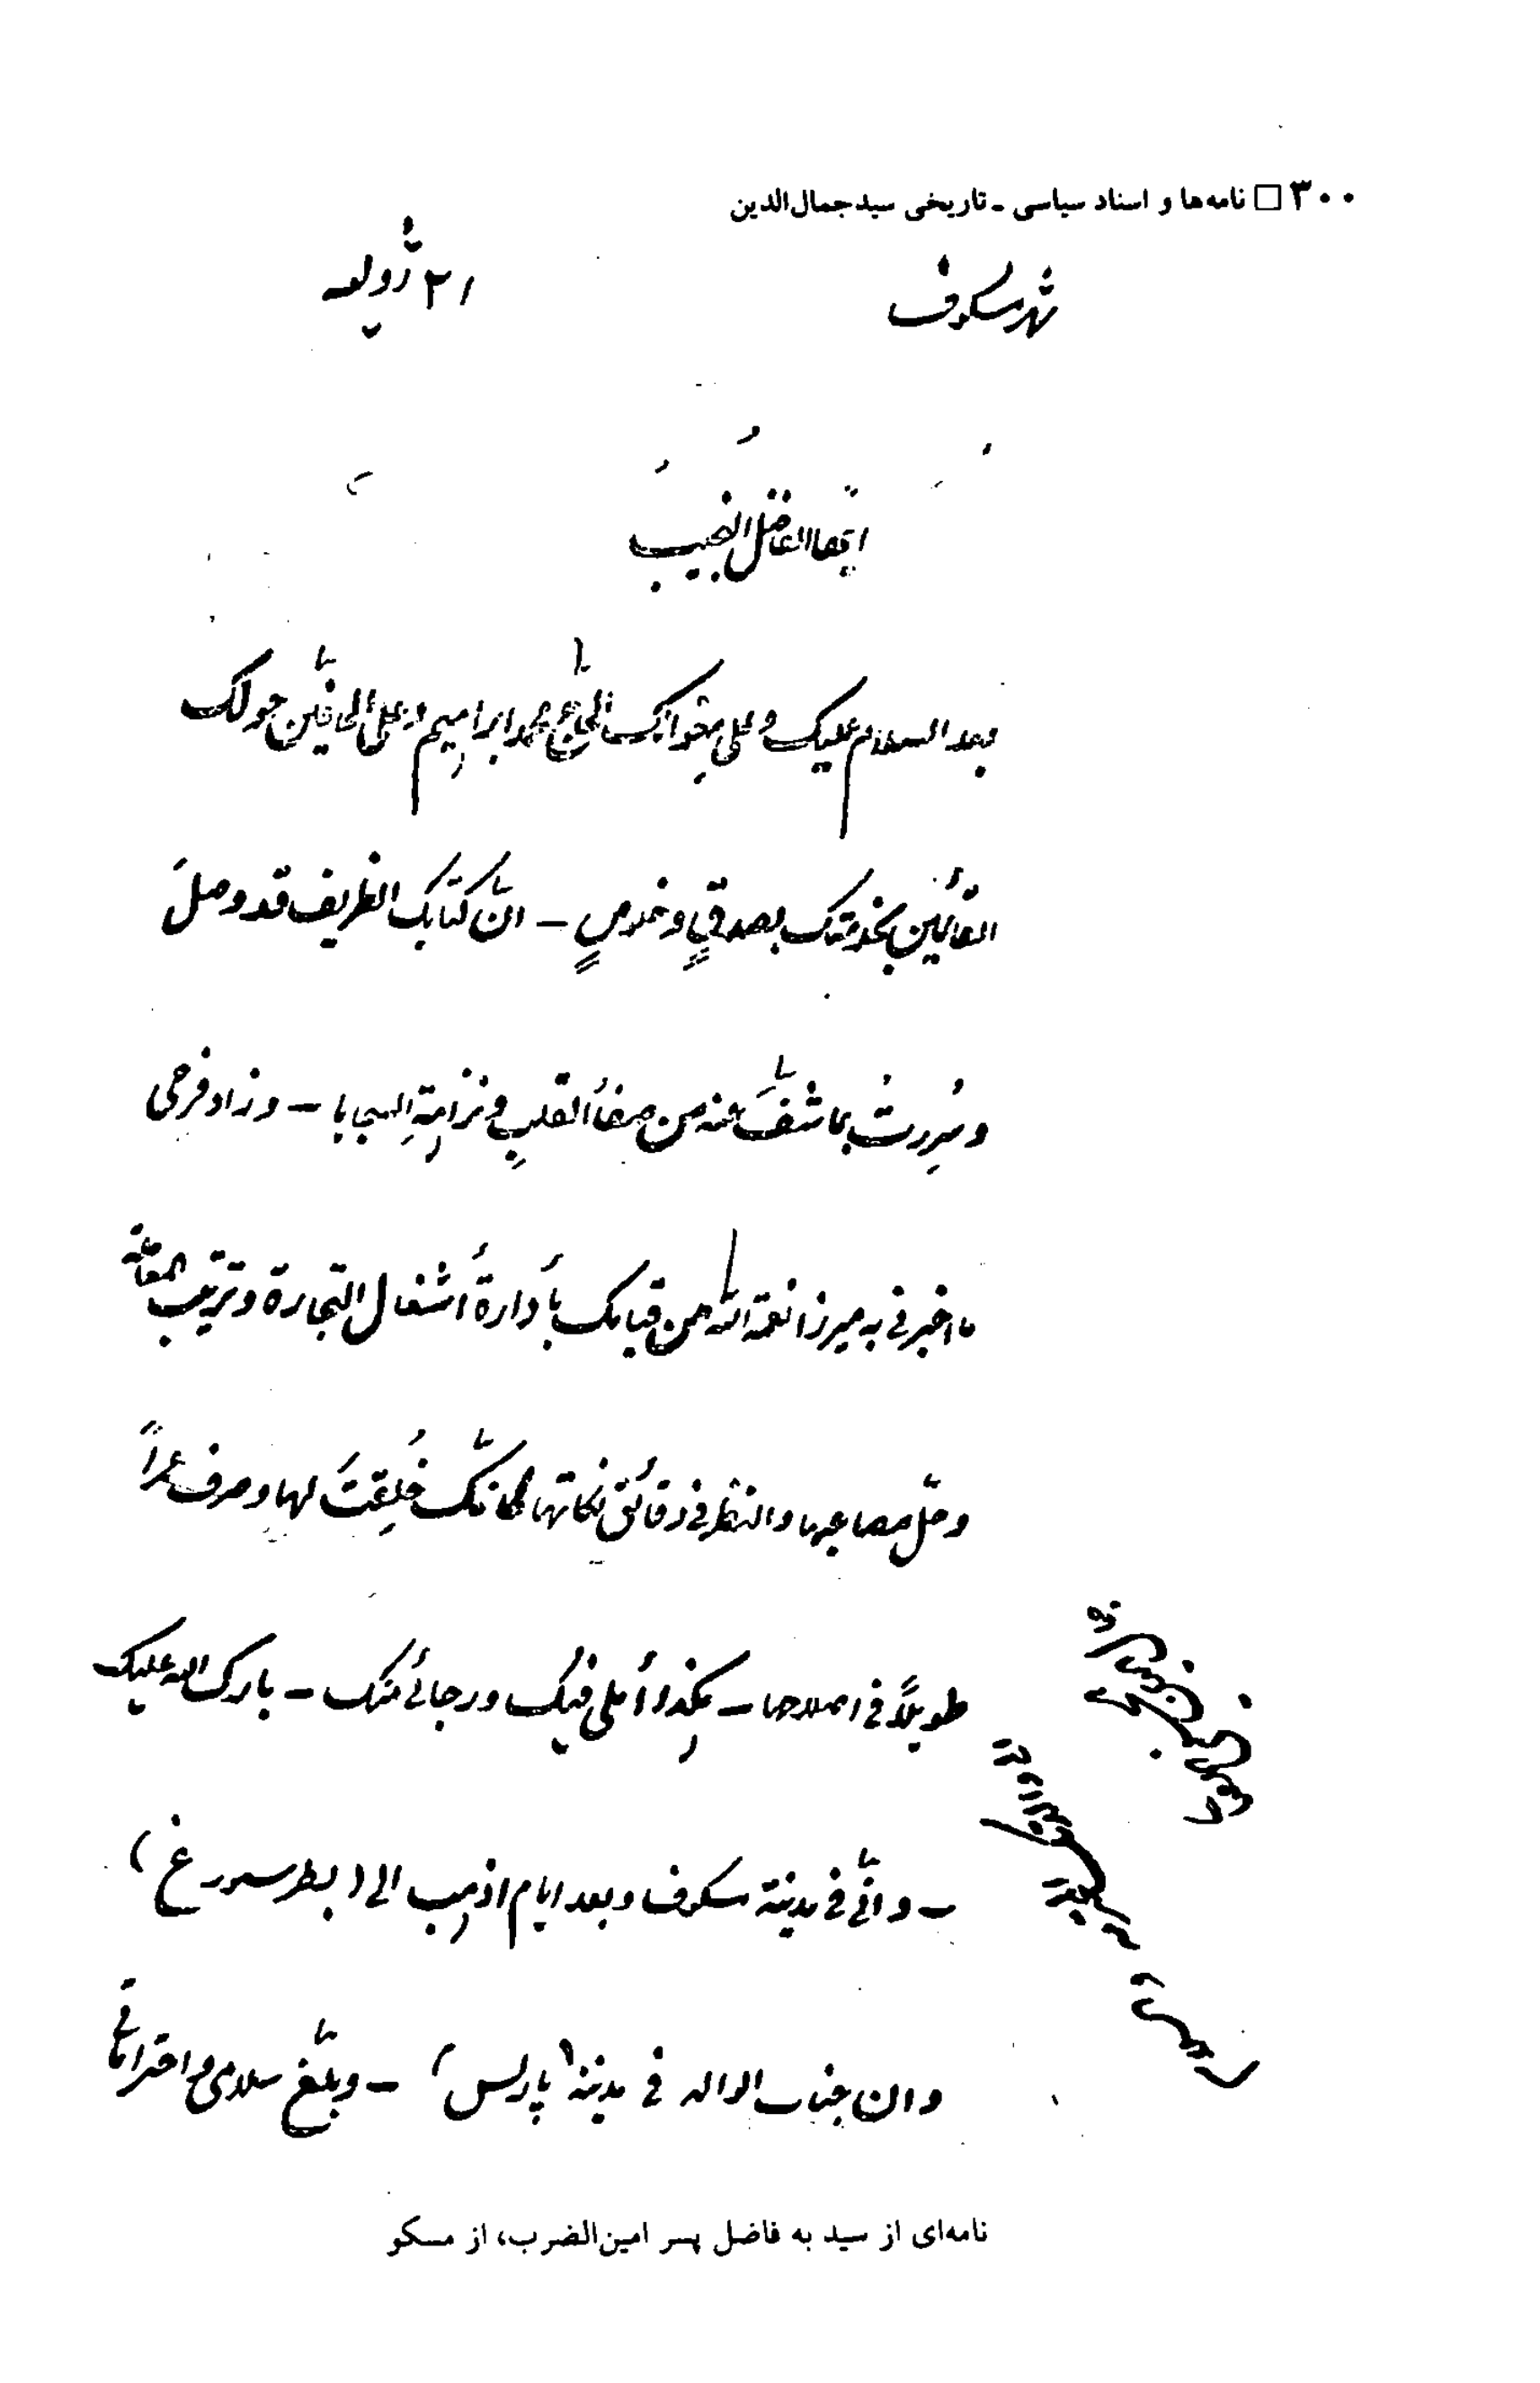 ۳۰۰ □ نامه‌ها و اسناد سیاسی ـ تاریخی سید جمال‌الدین
شهر مسکوف
۲۱ ژولیه
ایّها الفاضل النجیب
بعد السلام علیک و علی الحاج محمد ابراهیم و علی الحافّین حولک
القائمین بخدمتک بصدقٍ و خلوصٍ – انّ کتابک الظریف قد وصلَ
و سُرِرتُ بما شفَّ عنه من صفاء القلبِ و نزاهةِ السجایا – و زاد فرحی
ما اخبرنی به میرزا نعمة الله من قیامک بأدارة أشغال التجارة و ترتیب
و حلّ مصاعبها و النظر فی دقائق نکاتها کانّک خُلِقتَ لها و صرف عمراً
طویلاً فی اصلاحها – هکذا أملی فیک و رجائی منک – بارک الله علیک
– و انّی فی مدینة مسکوف و بعد ایام اذهب الی (بطرسبورغ)
و ان جناب الوالد فی مدینة (پاریس) – و بلّغ سلامی و احتراماتی
نامه‌ای از سید به فاضل پسر امین‌الضرب، از مسکو